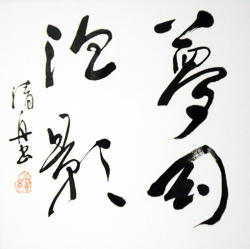 夢幻
泡影
清舟书